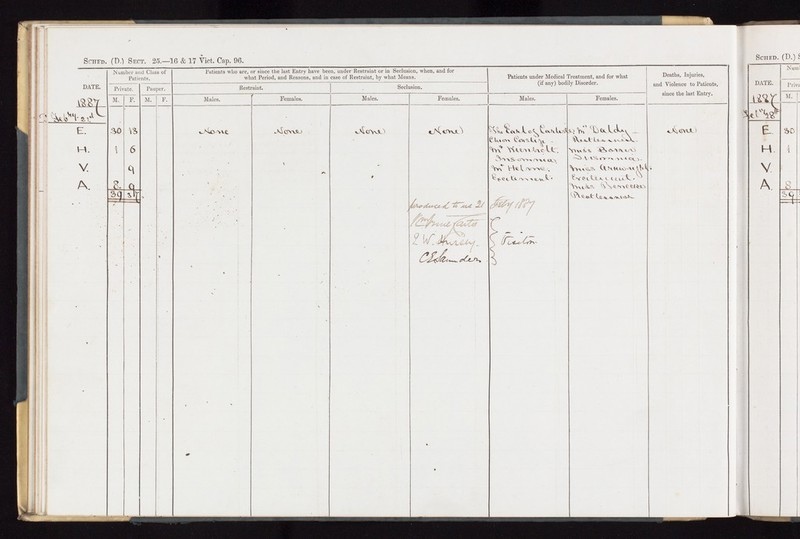 SCHED. (D.) SECT. 25.—16 & 17 Vict. Cap. 96.
DATE.
Number and Class of Patients.
Private. Pauper.
M. F. M. F.
Patients who are, or since the last Entry have been, under Restraint or in Seclusion, when, and for what Period, and Reasons, and in case of Restraint, by what Means.
Restraint. Seclusion.
Males. Females. Males. Females.
Patients under Medical Treatment, and for what (if any) bodily Disorder.
Males. Females.
Deaths, Injuries, and Violence to Patients, since the last Entry.
1887
Feby 21st
E. 30 13 None None None None None
H. 1 6
V. 9
A. 8 9
39 37
Insomnia
Mr Helme
Excitement
Mrs Valdy
Restlessness
Miss
Insomnia
Miss
Excitement
Miss
Restlessness
produced to us 21 Feby 1887
Hurley
C E Saunders
Visitors
SCHED. (D.)
DATE.
M.
1887
Feby 28th
E 30
H 1
V.
A. 8
39